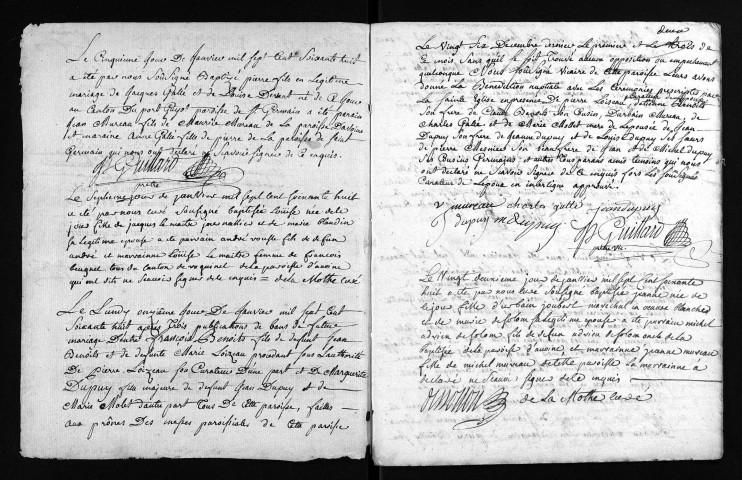 Le Cinquieme Jour De Janvier mil Sept Cent Soixante huit
a ete par nous Soussigne Baptizé pierre fils en Legitime
mariage de Jacques Galé et de Louise Durant né de Ce Jour
au Canton Du port paroisse de St Germain a ete parain
Jean Mureau fils de Maurice Mureau de La paroisse
et maraine Anne Galé fille de pierre de La paroisse de Saint
Germain qui nous ont declaré ne Scavoir signer de Ce enquis.
Guillard
pretre
Le Septieme jour de janvier mil sept cent soixante huit
a ete par nous curé soussigné baptisée Louise née de ce
jour fille de jacques le maitre journaillier et de marie blandin
sa legitime epouse a ete parrain andré fils de defunt
andré et marraine Louise Le maitre femme de francois
tous du canton de de la paroisse d'avoine
qui ont dit ne scavoir signer de ce enquis = de la Mothe curé
Le Lundy onzieme Jour De Janvier mil Sept Cent
Soixante huit après trois publications de bans de futur
mariage Dentre François Benoits fils de defunt Jean
Benoits et de defunte Marie Loizeau procedant sous L'authorité
De Pierre Loizeau son Curateur D'une part et De Marguerite
Dupuy fille majeure de defunt Jean Dupuy et de
Marie Molet d'autre part tous De Cette paroisse, faittes
aux prônes Des messes paroissiales de Cette paroisse
deux
Le Vingt Six Decembre dernier Le premier et Le trois de
Ce mois Sans qu'il se soit trouvé aucune opposition ou empechement
quelconque Nous Soussigné Vicaire de Cette paroisse Leurs avons
donné La Benediction nuptiale avec Les Ceremonies prescriptes par
La Sainte Eglise en presence De pierre Loizeau curateur d'Etienne Benoits
Son frere de Claude Son Cousin, D'urbain Mureau, de
Charles Galté et de Marie Molet mere de L'epouse de Jean
Dupuy Son frere de Dupuy et de Dupuy Ses Sœurs
de pierre Mesnier Son beaufrere de Jean et de Michel Dupuy
Ses Cousins Germains et autres Comparans amis temoins qui nous
ont declaré ne Scavoir Signer de Ce enquis fors Les Soussignés
Curateur de L'epoux en interligne approuvé.
mureau charles galté jean dupuy
dupuy m dupuy Guillard
pretre vic.
Le Vingt deuxieme jour de janvier mil sept cent soixante
huit a ete par nous curé soussigné baptisée jeanne née de
ce jour fille d'urbain joubert marechal en œuvre blanche
et de marie de sa legitime epouse a ete parrain michel
de la
de la paroisse d'avoine et marraine jeanne mureau
fille de michel mureau de cette paroisse La marraine a
declaré ne Scavoir signer de ce enquis
de La Mothe curé